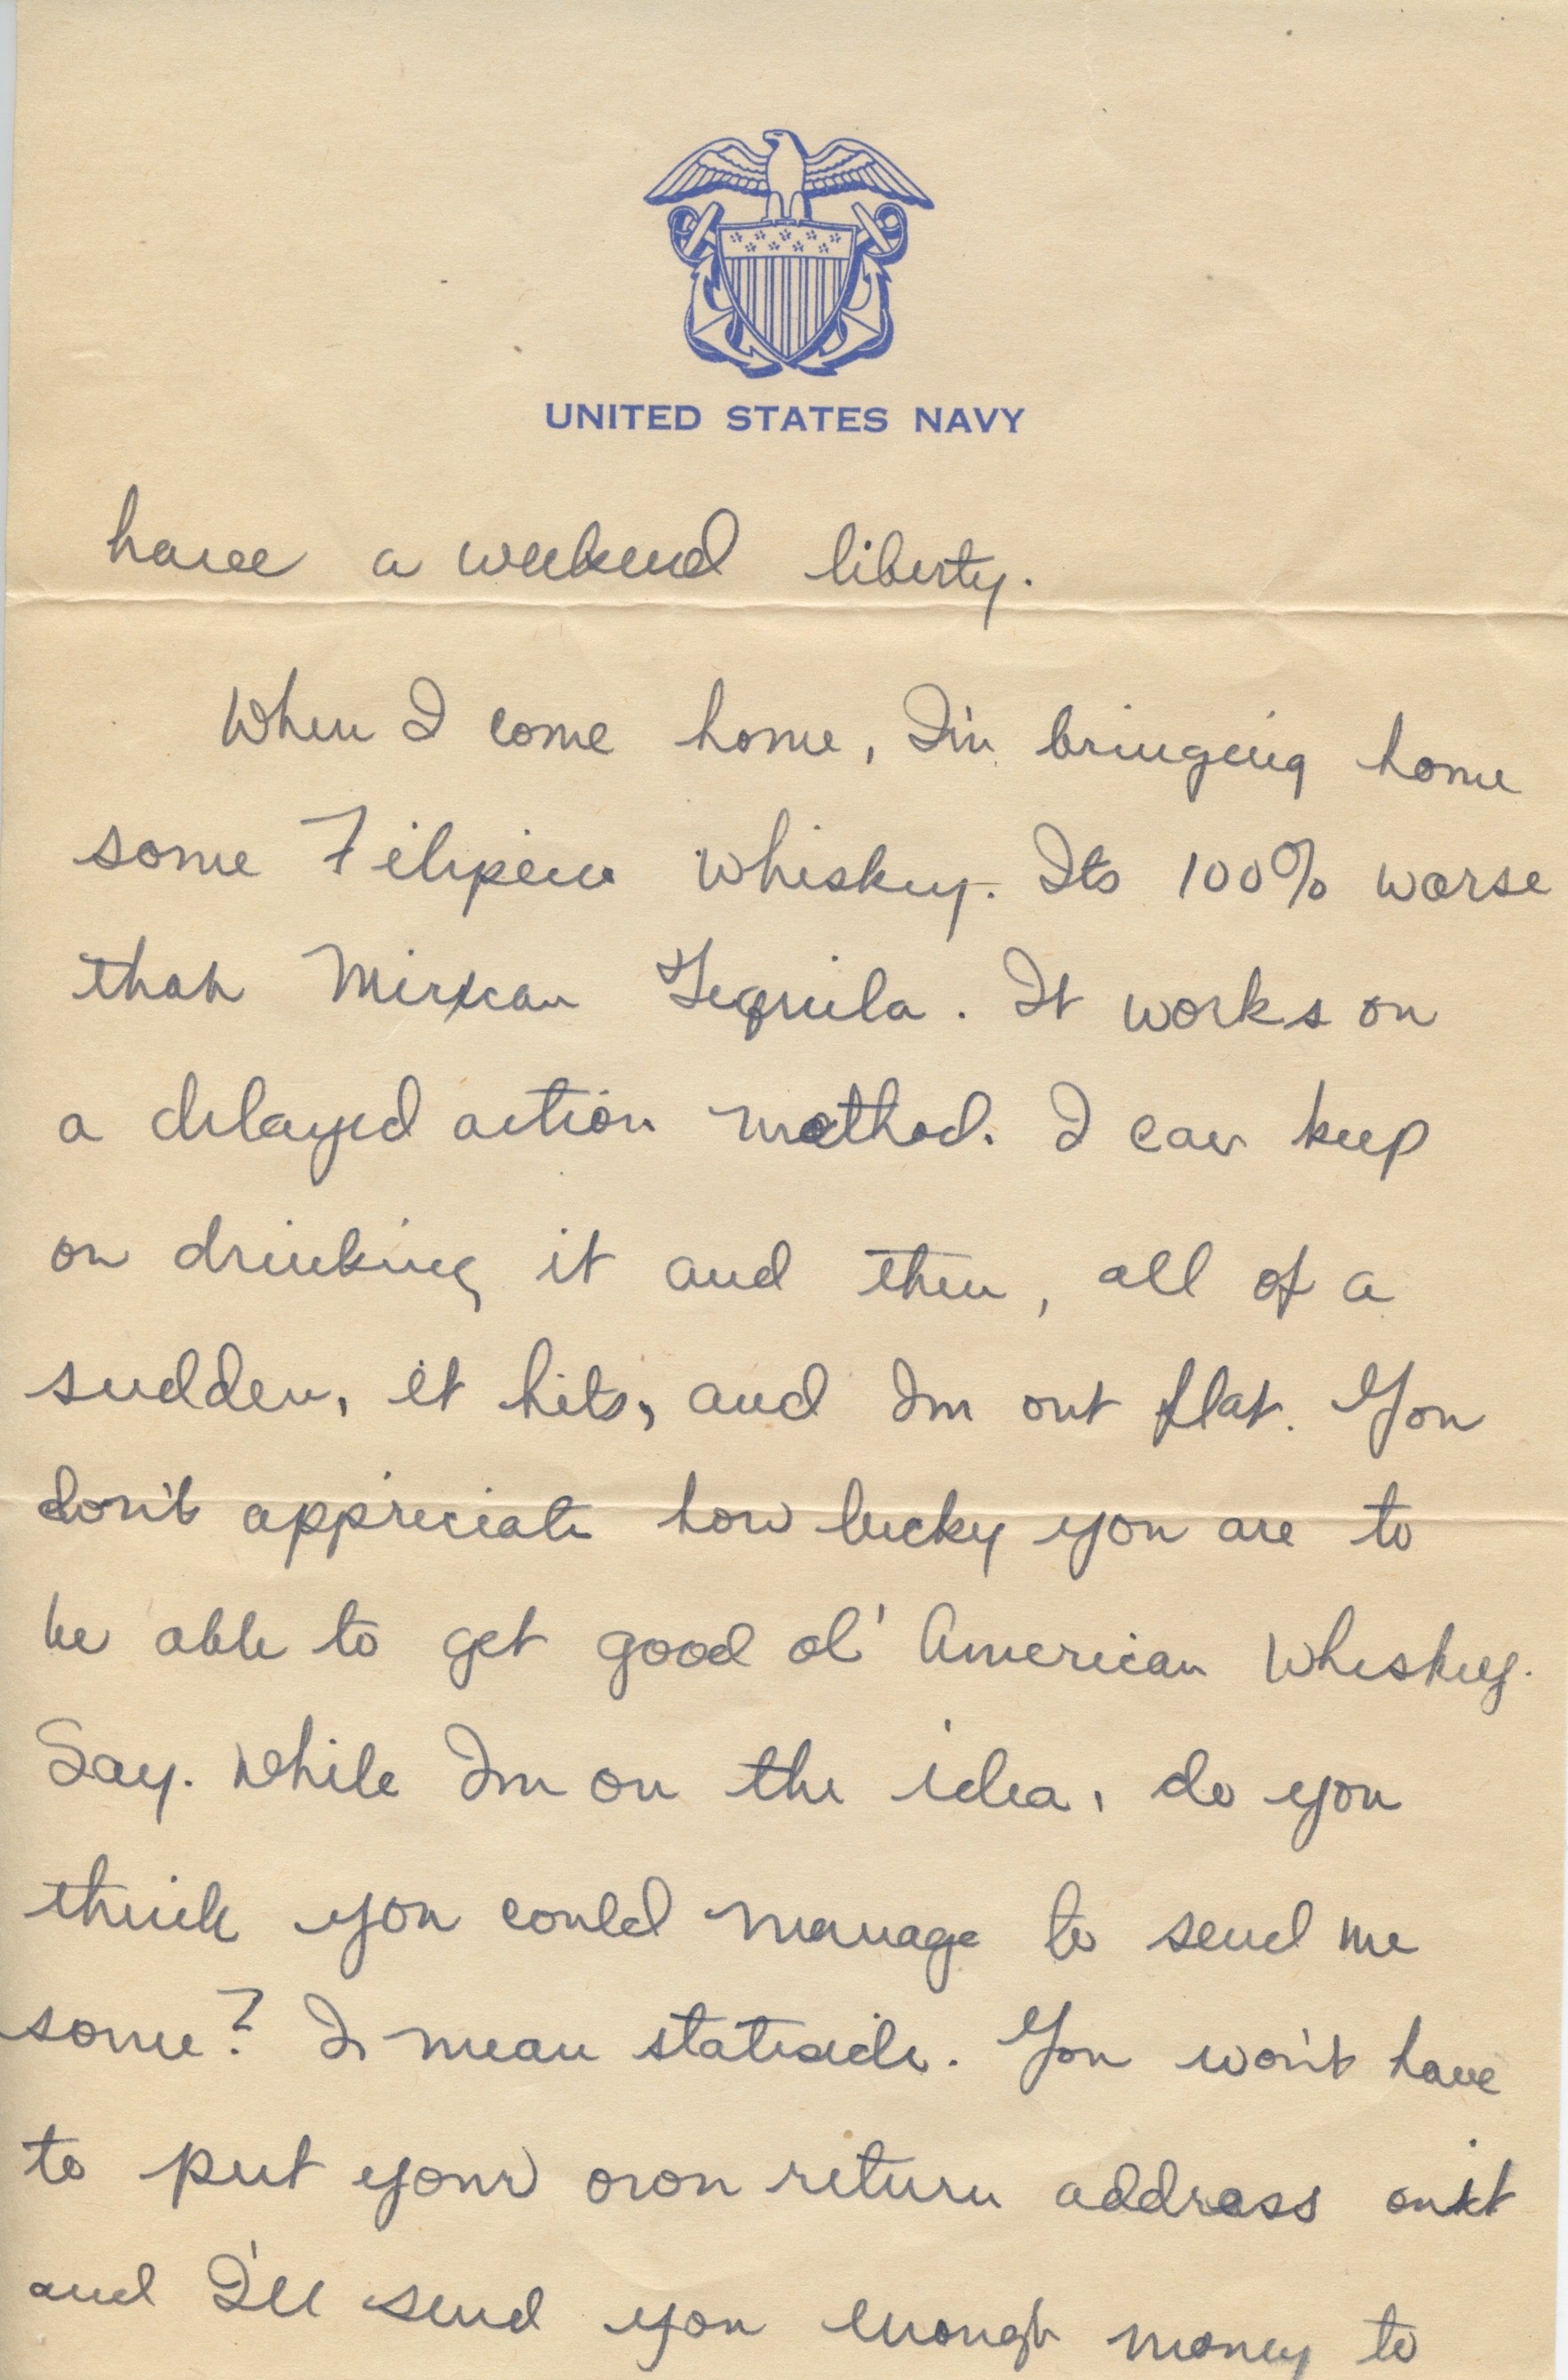 UNITED STATES NAVY
have a weekend liberty.
When I come home, I'm bringing home
some Filipino whiskey. Its 100% worse
than Mexican Tequila. It works on
a delayed action method. I can keep
on drinking it and then, all of a
sudden, it hits, and Im out flat. You
don't appreciate how lucky you are to
be able to get good ol' American Whiskey.
Say. While Im on the idea, do you
think you could manage to send me
some? I mean stateside. You won't have
to put your own return address on it
and I'll send you enough money to